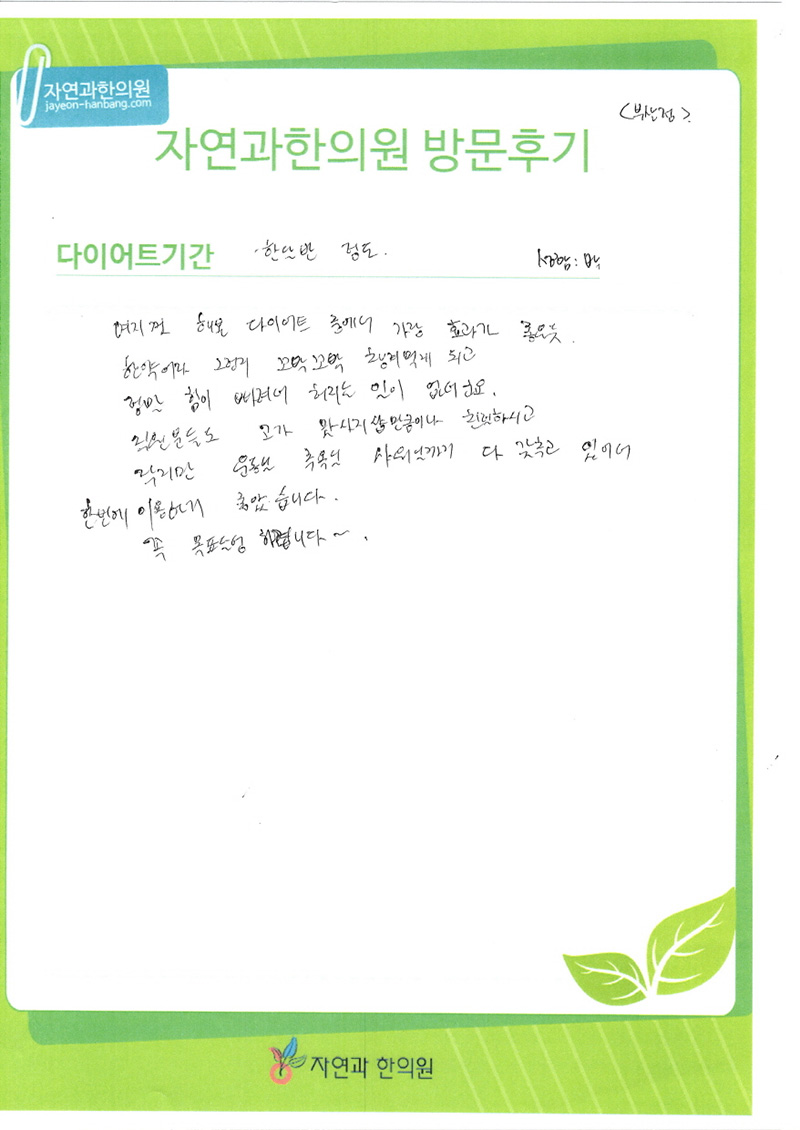 자연과한의원
jayeon-hanbang.com
<부산점>.
자연과한의원 방문후기
다이어트기간 한달반 정도.
성함: 박
여지껏 해온 다이어트 중에서 가장 효과가 좋은듯.
한약이라 그런지 꼬박꼬박 챙겨먹게 되고
정말 힘이 빠져서 쳐지는 일이 없네요.
직원분들도 친절하시고
작지만 운동실 족욕실 샤워실까지 다 갖추고 있어서
한번에 이용하기 좋았습니다.
꼭 목표달성 하렵니다~.
자연과 한의원